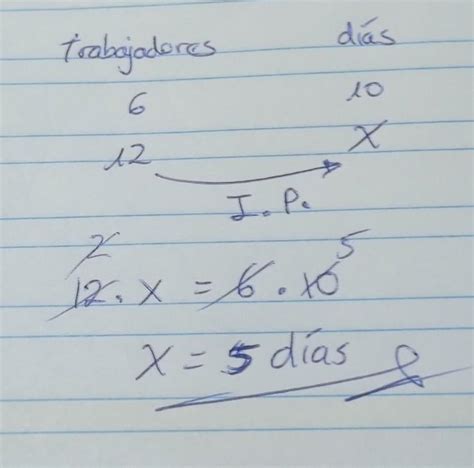 trabajadores días
6 10
12 X
I.P.
2 5
12. x = 6 . 10
X = 5 días